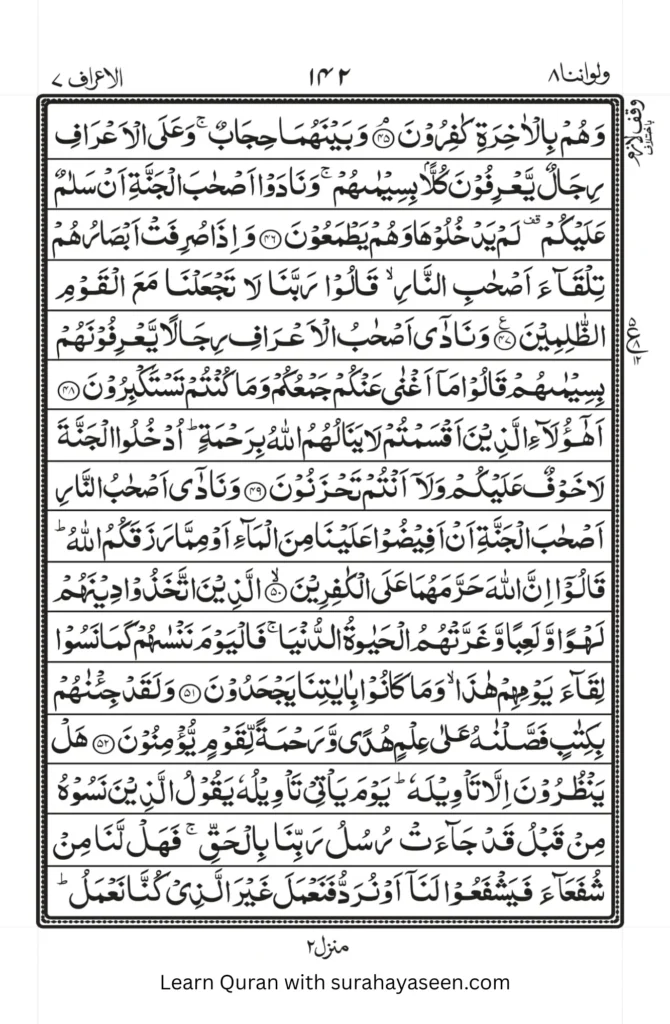 ولواننا۸ ۱۴۲ الاعراف ۷
وقف لازم
وَهُمْ بِالْاٰخِرَةِ كٰفِرُوْنَ ﴿۴۵﴾ وَبَيْنَهُمَا حِجَابٌ ۚ وَعَلَى الْاَعْرَافِ
رِجَالٌ يَّعْرِفُوْنَ كُلًّاۢ بِسِيْمٰىهُمْ ۚ وَنَادَوْا اَصْحٰبَ الْجَنَّةِ اَنْ سَلٰمٌ
عَلَيْكُمْ ۣ لَمْ يَدْخُلُوْهَا وَهُمْ يَطْمَعُوْنَ ﴿۴۶﴾ وَاِذَا صُرِفَتْ اَبْصَارُهُمْ
تِلْقَآءَ اَصْحٰبِ النَّارِ ۙ قَالُوْا رَبَّنَا لَا تَجْعَلْنَا مَعَ الْقَوْمِ
الظّٰلِمِيْنَ ﴿۴۷﴾ وَنَادٰٓى اَصْحٰبُ الْاَعْرَافِ رِجَالًا يَّعْرِفُوْنَهُمْ
بِسِيْمٰىهُمْ قَالُوْا مَآ اَغْنٰى عَنْكُمْ جَمْعُكُمْ وَمَا كُنْتُمْ تَسْتَكْبِرُوْنَ ﴿۴۸﴾
اَهٰٓؤُلَآءِ الَّذِيْنَ اَقْسَمْتُمْ لَا يَنَالُهُمُ اللّٰهُ بِرَحْمَةٍ ؕ اُدْخُلُوا الْجَنَّةَ
لَا خَوْفٌ عَلَيْكُمْ وَلَآ اَنْتُمْ تَحْزَنُوْنَ ﴿۴۹﴾ وَنَادٰٓى اَصْحٰبُ النَّارِ
اَصْحٰبَ الْجَنَّةِ اَنْ اَفِيْضُوْا عَلَيْنَا مِنَ الْمَآءِ اَوْ مِمَّا رَزَقَكُمُ اللّٰهُ ؕ
قَالُوْٓا اِنَّ اللّٰهَ حَرَّمَهُمَا عَلَى الْكٰفِرِيْنَ ۙ﴿۵۰﴾ الَّذِيْنَ اتَّخَذُوْا دِيْنَهُمْ
لَهْوًا وَّلَعِبًا وَّغَرَّتْهُمُ الْحَيٰوةُ الدُّنْيَا ۚ فَالْيَوْمَ نَنْسٰىهُمْ كَمَا نَسُوْا
لِقَآءَ يَوْمِهِمْ هٰذَا ۙ وَمَا كَانُوْا بِاٰيٰتِنَا يَجْحَدُوْنَ ﴿۵۱﴾ وَلَقَدْ جِئْنٰهُمْ
بِكِتٰبٍ فَصَّلْنٰهُ عَلٰى عِلْمٍ هُدًى وَّرَحْمَةً لِّقَوْمٍ يُّؤْمِنُوْنَ ﴿۵۲﴾ هَلْ
يَنْظُرُوْنَ اِلَّا تَاْوِيْلَهٗ ؕ يَوْمَ يَاْتِيْ تَاْوِيْلُهٗ يَقُوْلُ الَّذِيْنَ نَسُوْهُ
مِنْ قَبْلُ قَدْ جَآءَتْ رُسُلُ رَبِّنَا بِالْحَقِّ ۚ فَهَلْ لَّنَا مِنْ
شُفَعَآءَ فَيَشْفَعُوْا لَنَآ اَوْ نُرَدُّ فَنَعْمَلَ غَيْرَ الَّذِيْ كُنَّا نَعْمَلُ ؕ
منزل۲
Learn Quran with surahayaseen.com